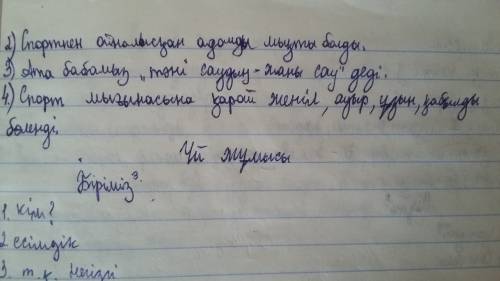 2) Спортпен айналысқан адамды мықты болды.
3) Ата бабамыз „тәні саудың - жаны сау" деді.
4.) Спорт мазынасына қарай жеңіл, ауыр, ұзын,
бөленді.
Үй жұмысы
Біріміз³
1. Кім?
2. есімдік
3. т.к. негізгі